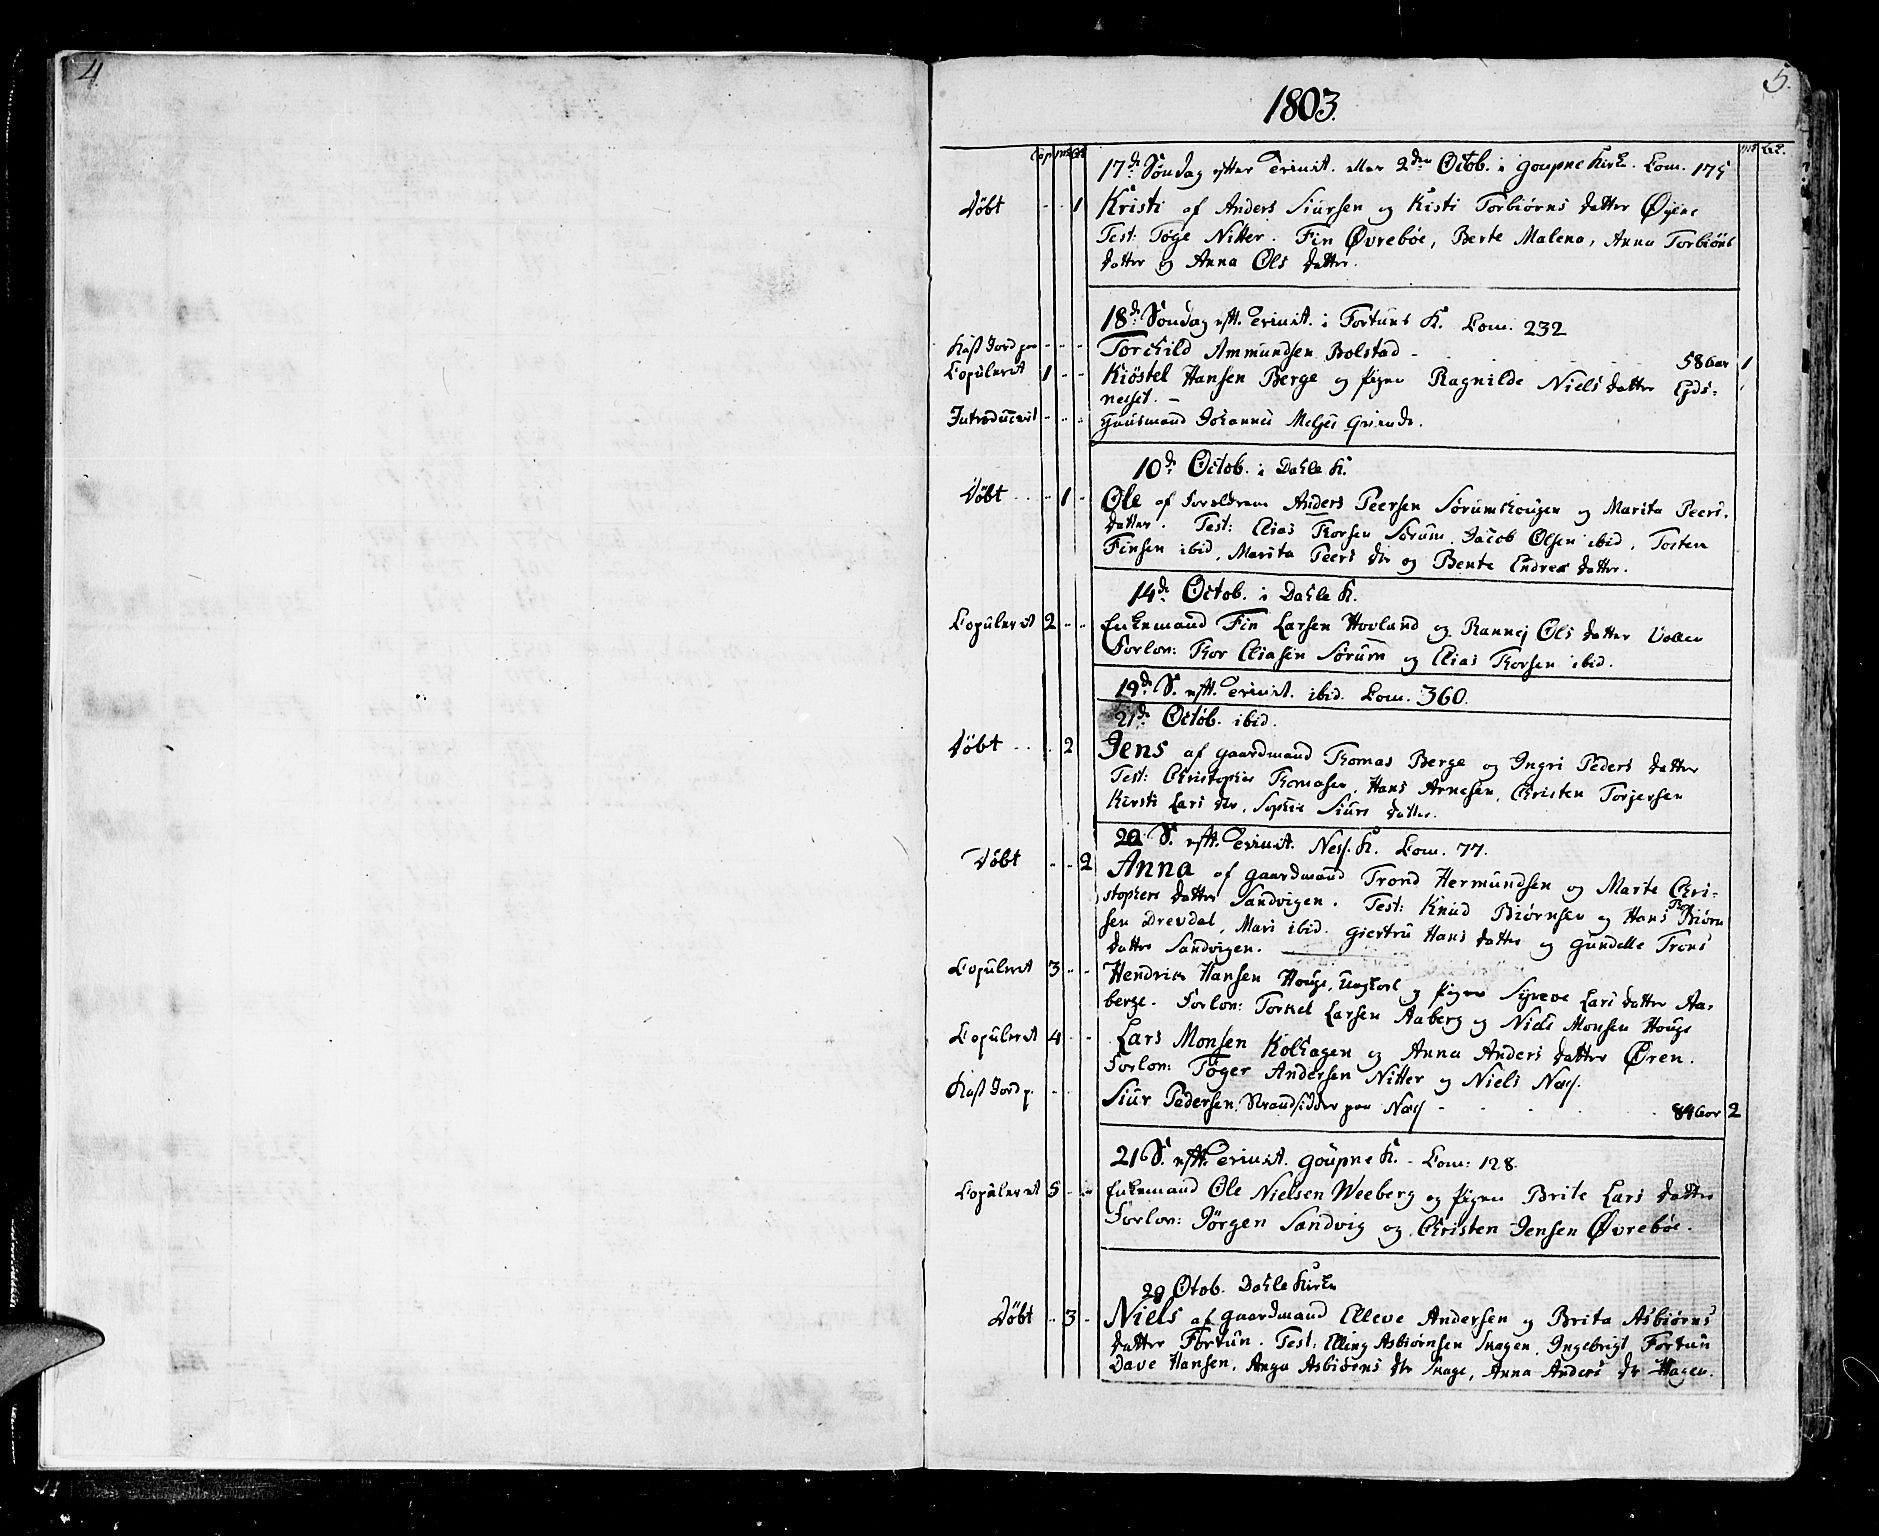 4
5.
1803.
Cop ms Qk ms Qk.
17de Søndag efter Trinit. eller 2den Octob. i Goupne Kirke. Com. 175
Döbt - - 1 Kristi af Anders Siursen og Kisti Torbiørns datter Øyene
Test: Tøge Nitter. Fin Øvrebøe, Berte Malena, Anna Torbiöns
datter og Anna Ols datter.
18de Søndag eft. Trinit. i Fortuns K. Com. 232
Kast Jord paa - - - Torchild Ammundsen Bolstad - 58 aar 1
Copuleret 1 - - Kiöstel Hansen Berge og Pigen Ragnilde Niels datter Eids=
nesset. -
Introduceret - - - Huusmand Johannes Melhei Qvinde.
10de Octob. i Dahle K.
Döbt - - 1 - Ole af Foreldrene Anders Peersen Sørumshougen og Marita Peers-
datter. Test: Elias Thorsen Sørum, Jacob Olsen ibid, Tosten
Finsen ibid, Marita Peers dtr og Bente Endres datter.
14de Octob. i Dahle K.
Copuleret 2 - - Enkemand Fin Larsen Hovland og Rannej Ols datter Vollen
Forlov: Thor Eliasen Sørum og Elias Thorsen ibid.
19de S. eft. Trinit. ibid. Com. 360.
21de Octob. ibid.
Döbt - - - 2 Jens af Gaardmand Thomas Berge og Ingri Peders datter
Test: Christopher Thomasen, Hans Arnesen, Christen Torjersen
Kirsti Lars dtr, Sophie Siurs datter.
20 S. eft. Trinit. Ness. K. Com. 77.
Döbt - - 2 Anna af Gaardmand Trond Hermundsen og Marite Chri-
stophers datter Sandvigen. Test: Knud Biørnsen og Hans Biørn
sen Drevdal, Mari ibid. Giertru Hans datter og Gundelle Trons
datter Sandvigen.
Copuleret 3 - - Hendrik Hansen Houge, Ungkarl og Pigen Syneve Lars datter Aa-
berge. Forlov: Torkel Larsen Aaberg og Niels Monsen Houge
Copuleret 4 - - Lars Monsen Kolhagen og Anna Anders datter Øren.
Forlov: Tøger Andersen Nitter og Niels Næss.
Kast Jord p. - - Siur Pedersen, Strandsidder paa Næss - 84 aar 2
21 S. eft. Trinit. Goupne K. - Com: 128.
Copuleret 5 - - Enkemand Ole Nielsen Weeberg og Pigen Brite Lars datter
Forlov: Jörgen Sandvig og Christen Jensen Øvrebøe.
29 Otob. Dahle Kirke
Döbt - 3 - Niels af Gaardmand Elleve Andersen og Brita Asbiørns
datter Fortun. Test: Elling Asbiørnsen Skagen, Ingebrigt Fortun
Dave Hansen, Anga Asbiørns dtr Skage, Anna Anders dtr Hagen.